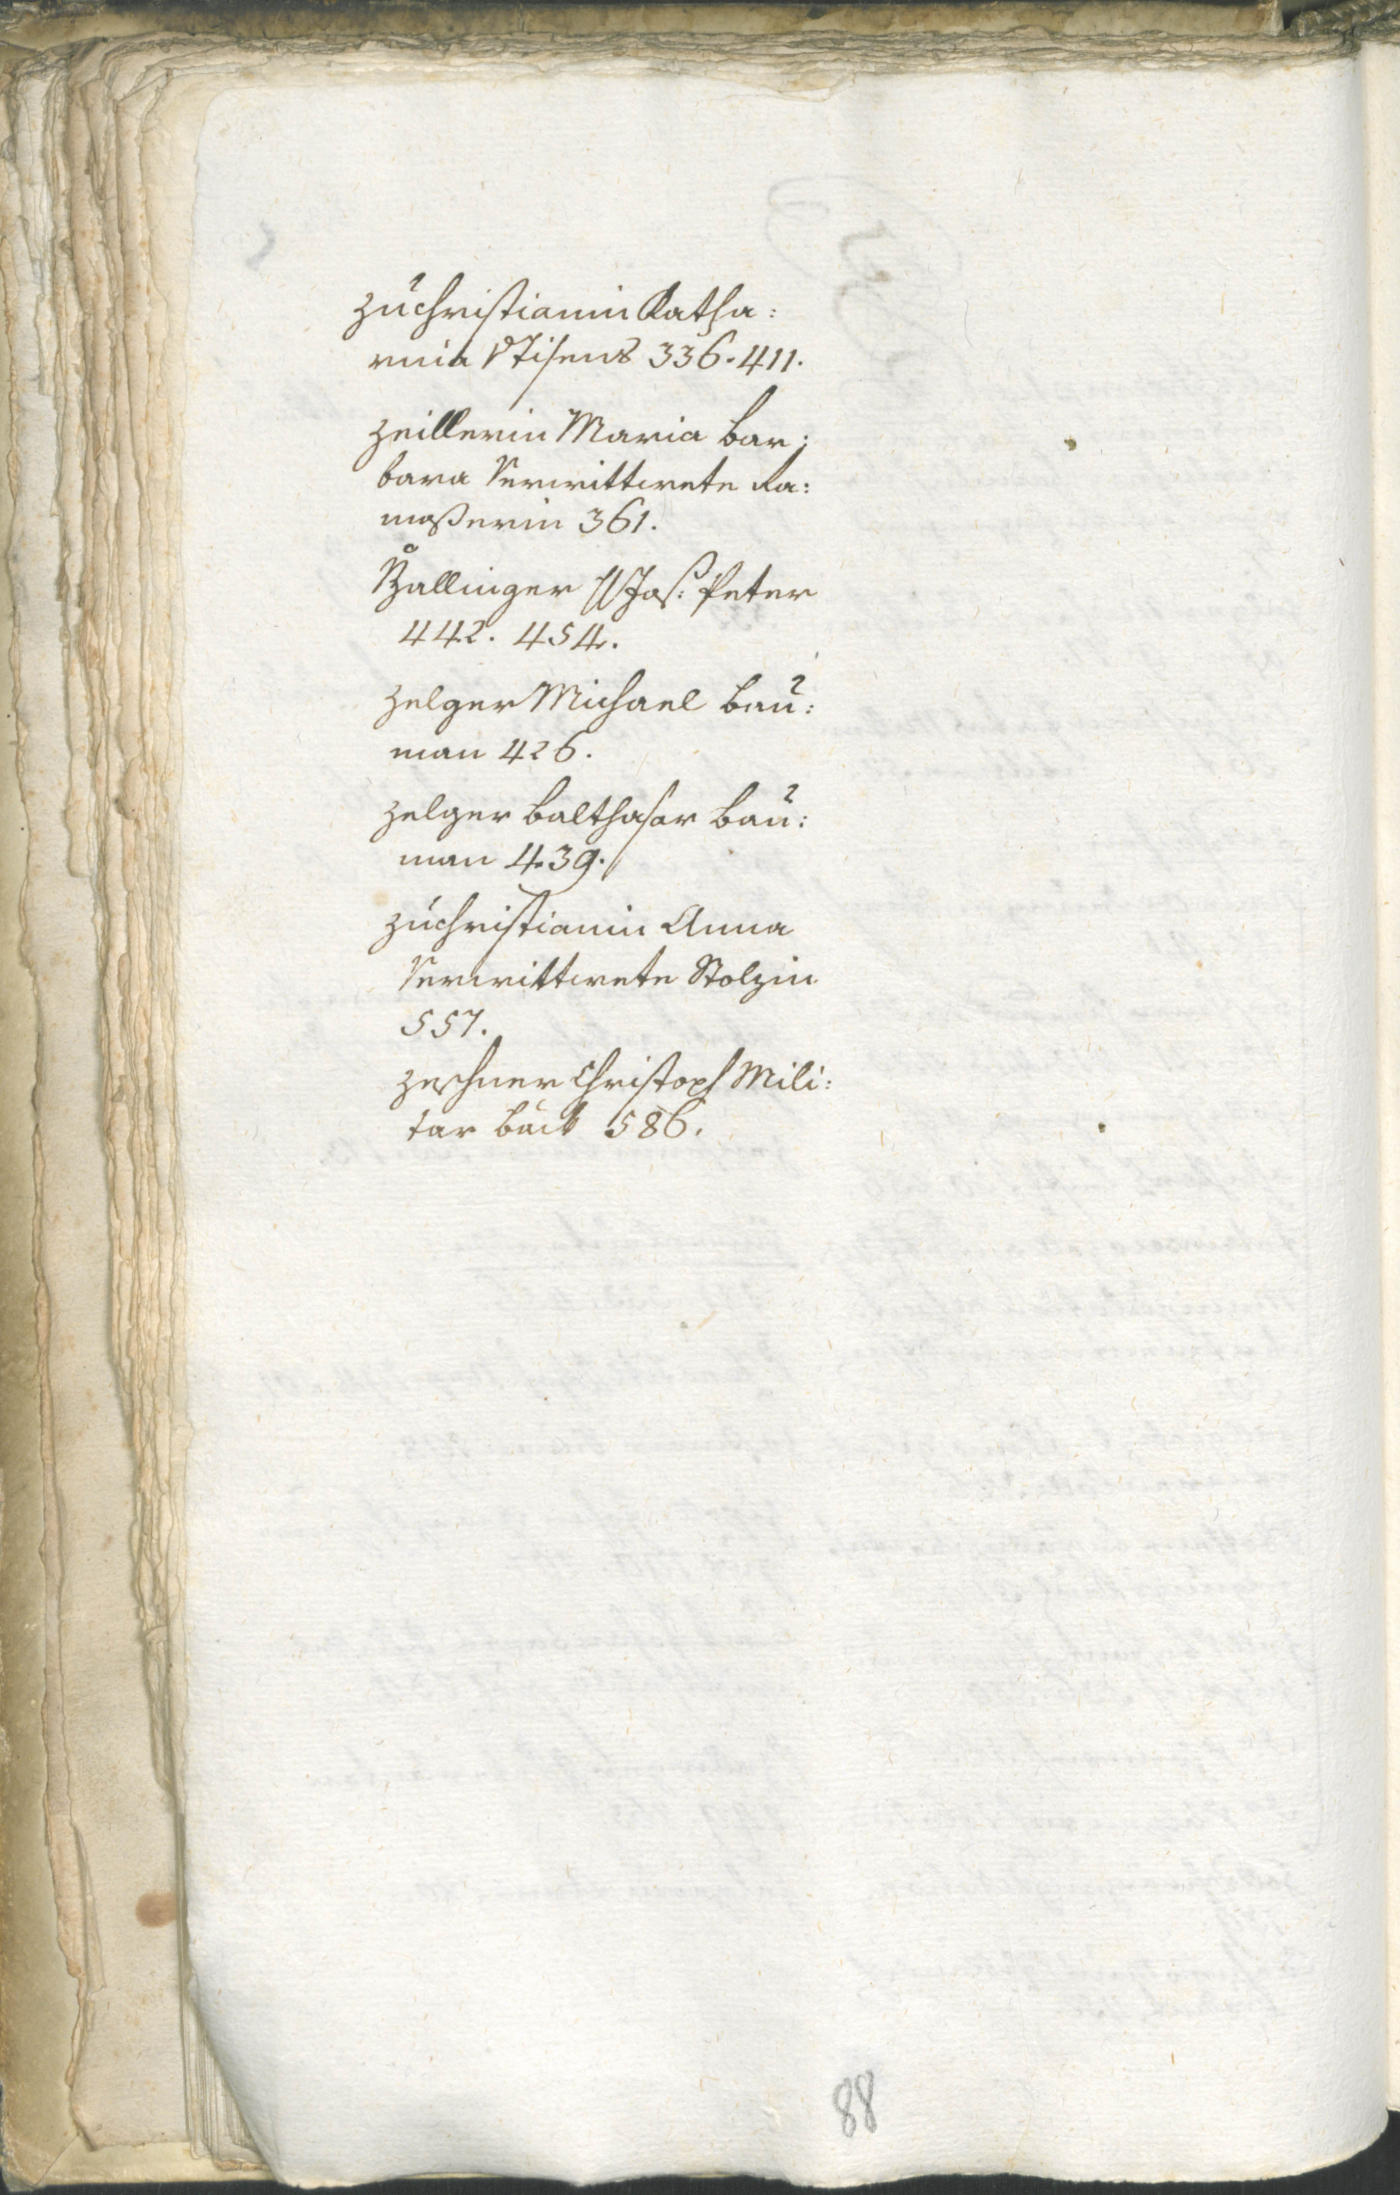 Zuchristianin Katha:
rina 336. 411.
Zeillerin Maria Bar:
bara Verwittwete Ra:
moßerin 361.
Zallinger Jos: Peter
442. 454.
Zelger Michael Bau:
man 426.
Zelger Balthasar Bau:
man 439.
Zuchristianin Anna
Verwittwete Stolzin
557.
Zechner Christoph Mili:
tar Bäck 586.
88